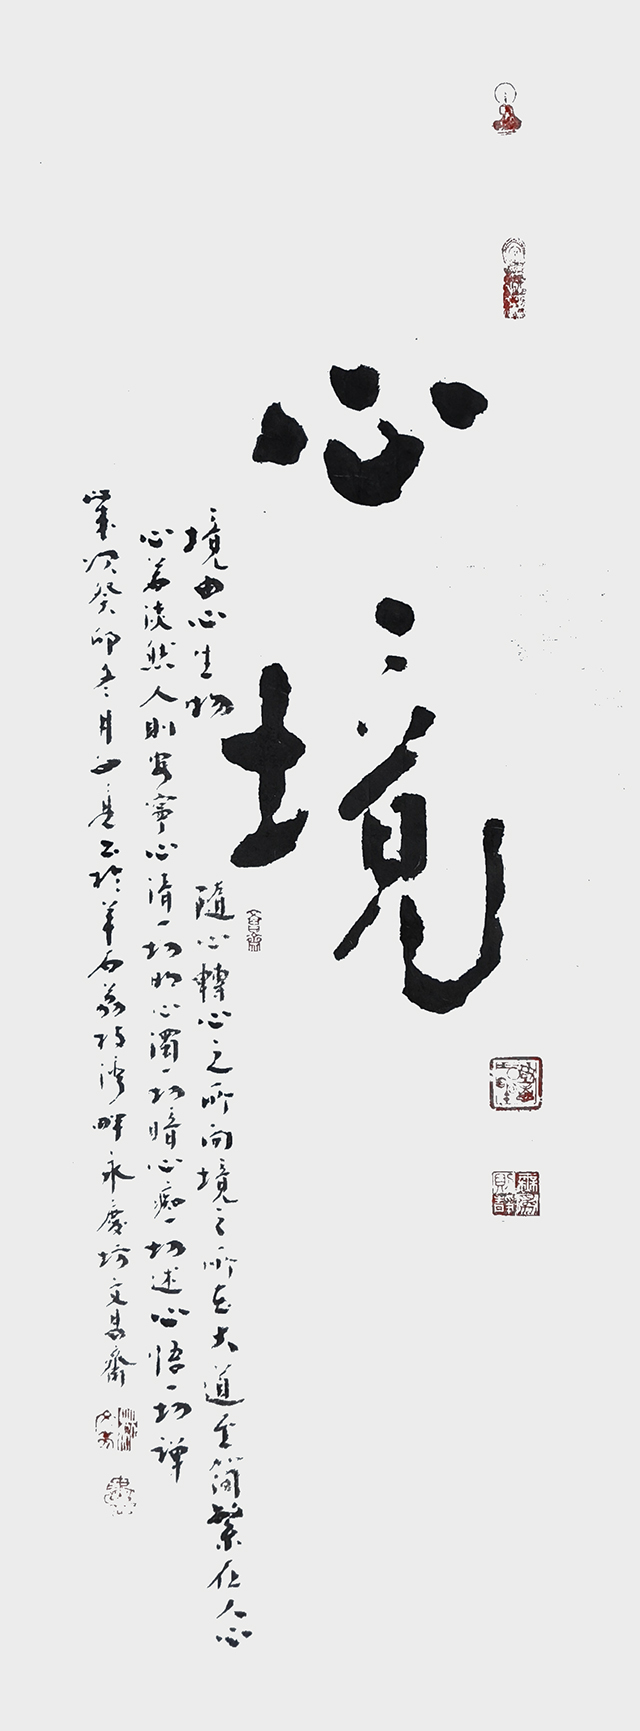 心境
境由心生物隨心轉心之所向境之所在大道至簡繁在人心
心若淡然人則安寧心清一切明心濁一切暗心痴一切迷心悟一切禪
歲次癸卯冬月於羊石荔枝灣畔永慶坊文易齋